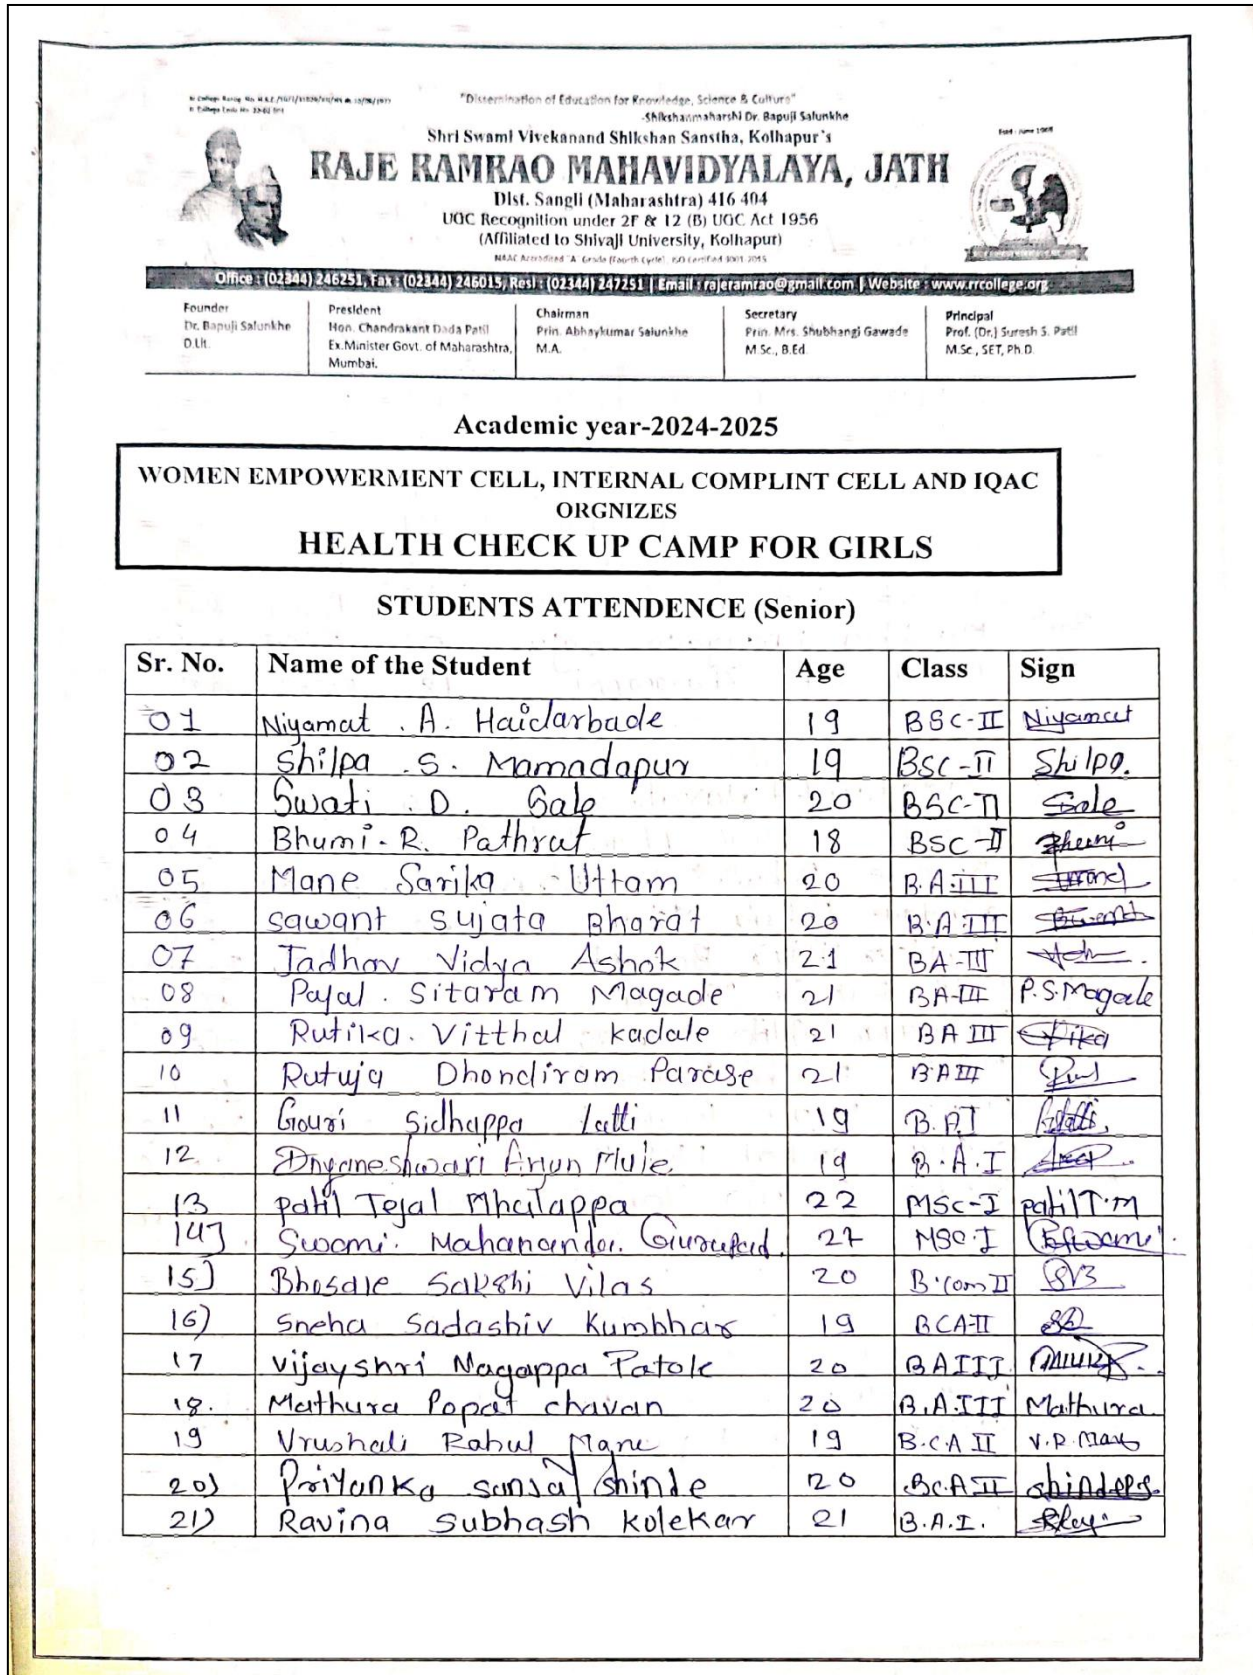 "Dissemination of Education for Knowledge, Science & Culture"
-Shikshanmaharshi Dr. Bapuji Salunkhe
Shri Swami Vivekanand Shikshan Sanstha, Kolhapur's
RAJE RAMRAO MAHAVIDYALAYA, JATH
Dist. Sangli (Maharashtra) 416 404
UGC Recognition under 2F & 12 (B) UGC Act 1956
(Affiliated to Shivaji University, Kolhapur)
NAAC Accredited "A" Grade (Fourth Cycle), ISO Certified 9001-2015
Estd - June 1969
Office : (02344) 246251, Fax : (02344) 246015, Resi : (02344) 247251 | Email : rajeramrao@gmail.com | Website : www.rrcollege.org
Founder
Dr. Bapuji Salunkhe
D.Lit.
President
Hon. Chandrakant Dada Patil
Ex.Minister Govt. of Maharashtra,
Mumbai.
Chairman
Prin. Abhaykumar Salunkhe
M.A.
Secretary
Prin. Mrs. Shubhangi Gawade
M.Sc., B.Ed.
Principal
Prof. (Dr.) Suresh S. Patil
M.Sc., SET, Ph.D.
Academic year-2024-2025
WOMEN EMPOWERMENT CELL, INTERNAL COMPLINT CELL AND IQAC
ORGNIZES
HEALTH CHECK UP CAMP FOR GIRLS
STUDENTS ATTENDENCE (Senior)
Sr. No. Name of the Student Age Class Sign
01 Niyamat . A. Haidarbade 19 BSC-II Niyamat
02 Shilpa . S. Mamadapur 19 BSC-II Shilpa.
03 Swati . D. Sale 20 BSC-II Sale
04 Bhumi. R. Pathrat 18 BSC-II Bhumi
05 Mane Sarika Uttam 20 B.A.III
06 sawant sujata Bharat 20 B.A III
07 Jadhav Vidya Ashok 21 BA-III
08 Pajal . Sitaram Magade 21 BA-III P.S.Magade
09 Rutika. Vitthal kadale 21 BA III
10 Rutuja Dhondiram Parase 21 B.A III
11 Gouri Sidhappa Latti 19 B.A I
12 Dnyaneshwari Arjun Mule 19 B.A.I
13 patil Tejal Mhalappa 22 MSc-I patil T.M
14] Swami. Mahananda. Gurupad. 27 MSC-I
15) Bhosale Sakshi Vilas 20 B.com II SVB
16) Sneha Sadashiv Kumbhar 19 BCA-II
17 Vijayshri Nagappa Patole 20 BA III
18. Mathura Popat chavan 20 B.A.III Mathura
19 Vrushali Rahul Mane 19 B.C.A II V.R.Mane
20) Priyanka sanjay shinde 20 BCA II
21) Ravina Subhash kolekar 21 B.A.I.